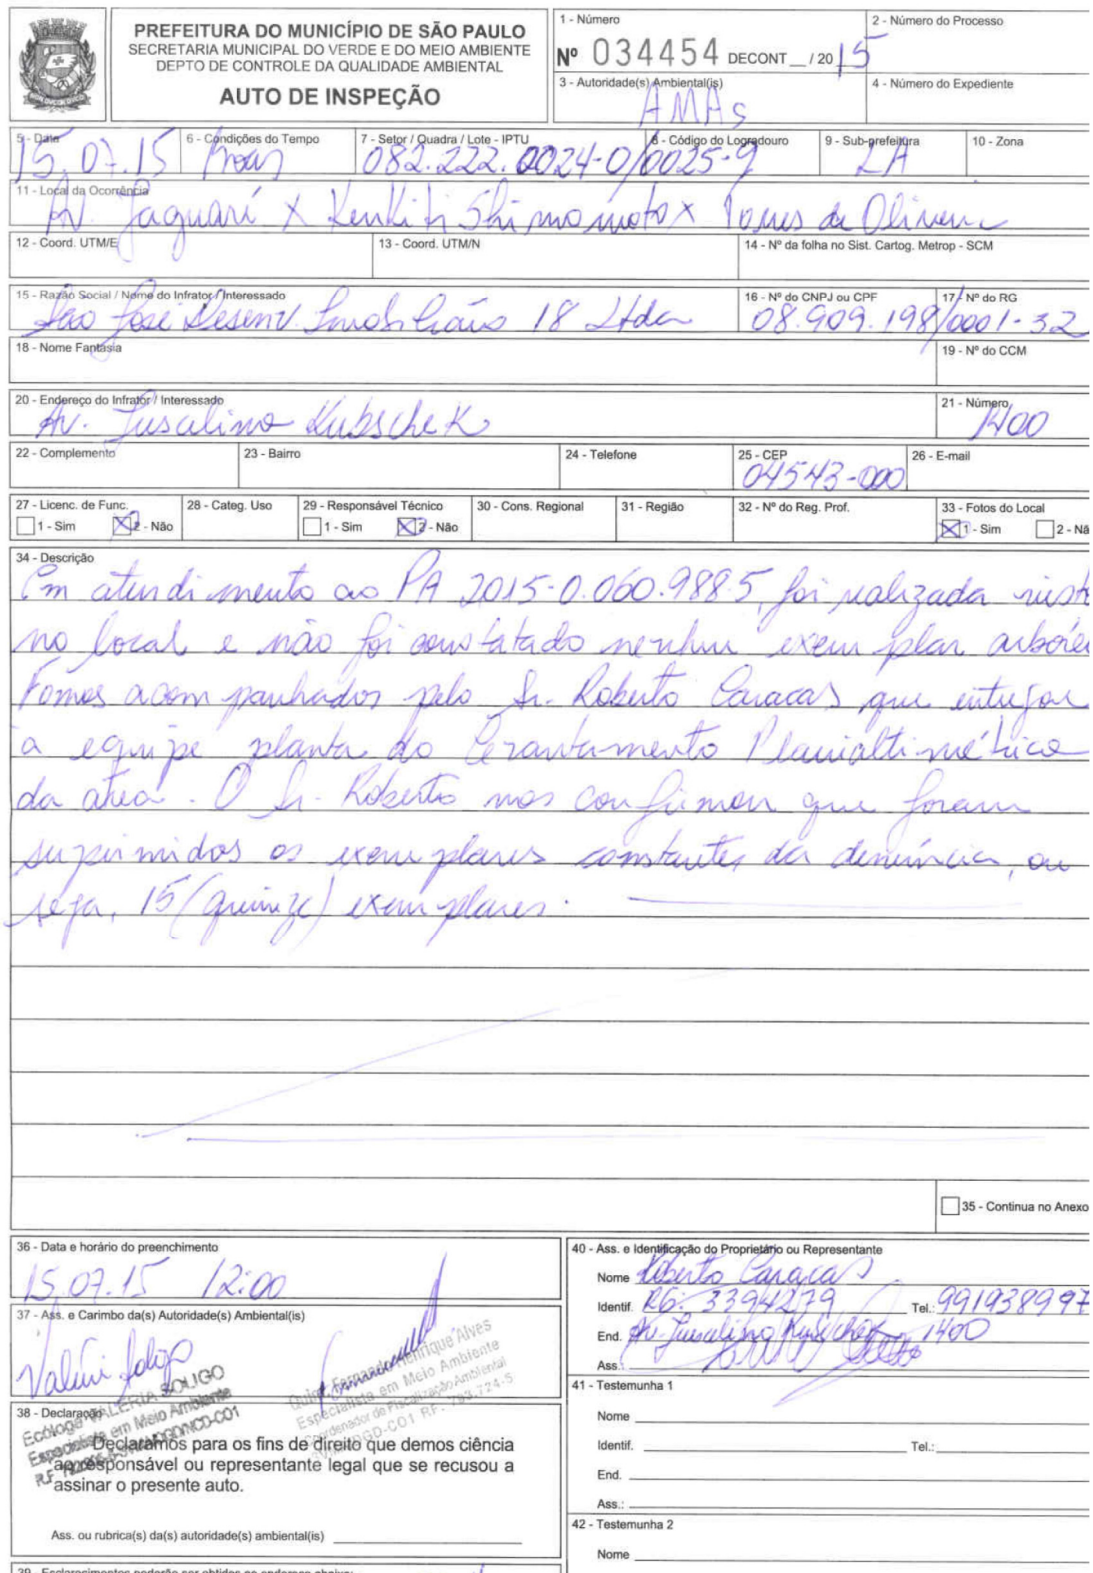 PREFEITURA DO MUNICÍPIO DE SÃO PAULO
SECRETARIA MUNICIPAL DO VERDE E DO MEIO AMBIENTE
DEPTO DE CONTROLE DA QUALIDADE AMBIENTAL
AUTO DE INSPEÇÃO
1 - Número
Nº 034454 DECONT__/20 15
2 - Número do Processo
3 - Autoridade(s) Ambiental(is)
AMAs
4 - Número do Expediente
5 - Data
15.07.15
6 - Condições do Tempo
7 - Setor / Quadra / Lote - IPTU
082.222.0024-0/0025-9
8 - Código do Logradouro
9 - Sub-prefeitura
LA
10 - Zona
11 - Local da Ocorrência
Av. Jaguaré X Kenkiti Shimomoto X Torres de Oliveira
12 - Coord. UTM/E
13 - Coord. UTM/N
14 - Nº da folha no Sist. Cartog. Metrop - SCM
15 - Razão Social / Nome do Infrator / Interessado
São José Desenv. Imobiliário 18 Ltda
16 - Nº do CNPJ ou CPF
17 - Nº do RG
08.909.198/0001-32
18 - Nome Fantasia
19 - Nº do CCM
20 - Endereço do Infrator / Interessado
Av. Juscelino Kubschek
21 - Número
1400
22 - Complemento
23 - Bairro
24 - Telefone
25 - CEP
04543-000
26 - E-mail
27 - Licenc. de Func.
1 - Sim 2 - Não
28 - Categ. Uso
29 - Responsável Técnico
1 - Sim 2 - Não
30 - Cons. Regional
31 - Região
32 - Nº do Reg. Prof.
33 - Fotos do Local
1 - Sim 2 - Nã
34 - Descrição
Em atendimento ao PA 2015-0.060.988.5, foi realizada vist
no local e não foi constatado nenhum exemplar arbóre
Fomos acompanhados pelo Sr. Roberto Caracas que entregou
a equipe planta do Levantamento Planialtimétrico
da área. O Sr. Roberto nos confirmou que foram
suprimidos os exemplares constantes da denúncia, ou
seja, 15 (quinze) exemplares.
35 - Continua no Anexo
36 - Data e horário do preenchimento
15.07.15 12:00
37 - Ass. e Carimbo da(s) Autoridade(s) Ambiental(is)
Valéria Soligo
Ecóloga VALERIA SOLIGO
Especialista em Meio Ambiente
Fernando Henrique Alves
Especialista em Meio Ambiente
Coordenador de Fiscalização Ambiental
R.F. 793.724-5
38 - Declaração
Declaramos para os fins de direito que demos ciência
ao responsável ou representante legal que se recusou a
assinar o presente auto.
Ass. ou rubrica(s) da(s) autoridade(s) ambiental(is)
39 - Esclarecimentos poderão ser obtidos no endereço abaixo:
40 - Ass. e Identificação do Proprietário ou Representante
Nome Roberto Caracas
Identif. RG: 3394279 Tel.: 991938997
End. Av. Juscelino Kubschek 1400
Ass.:
41 - Testemunha 1
Nome
Identif. Tel.:
End.
Ass.:
42 - Testemunha 2
Nome